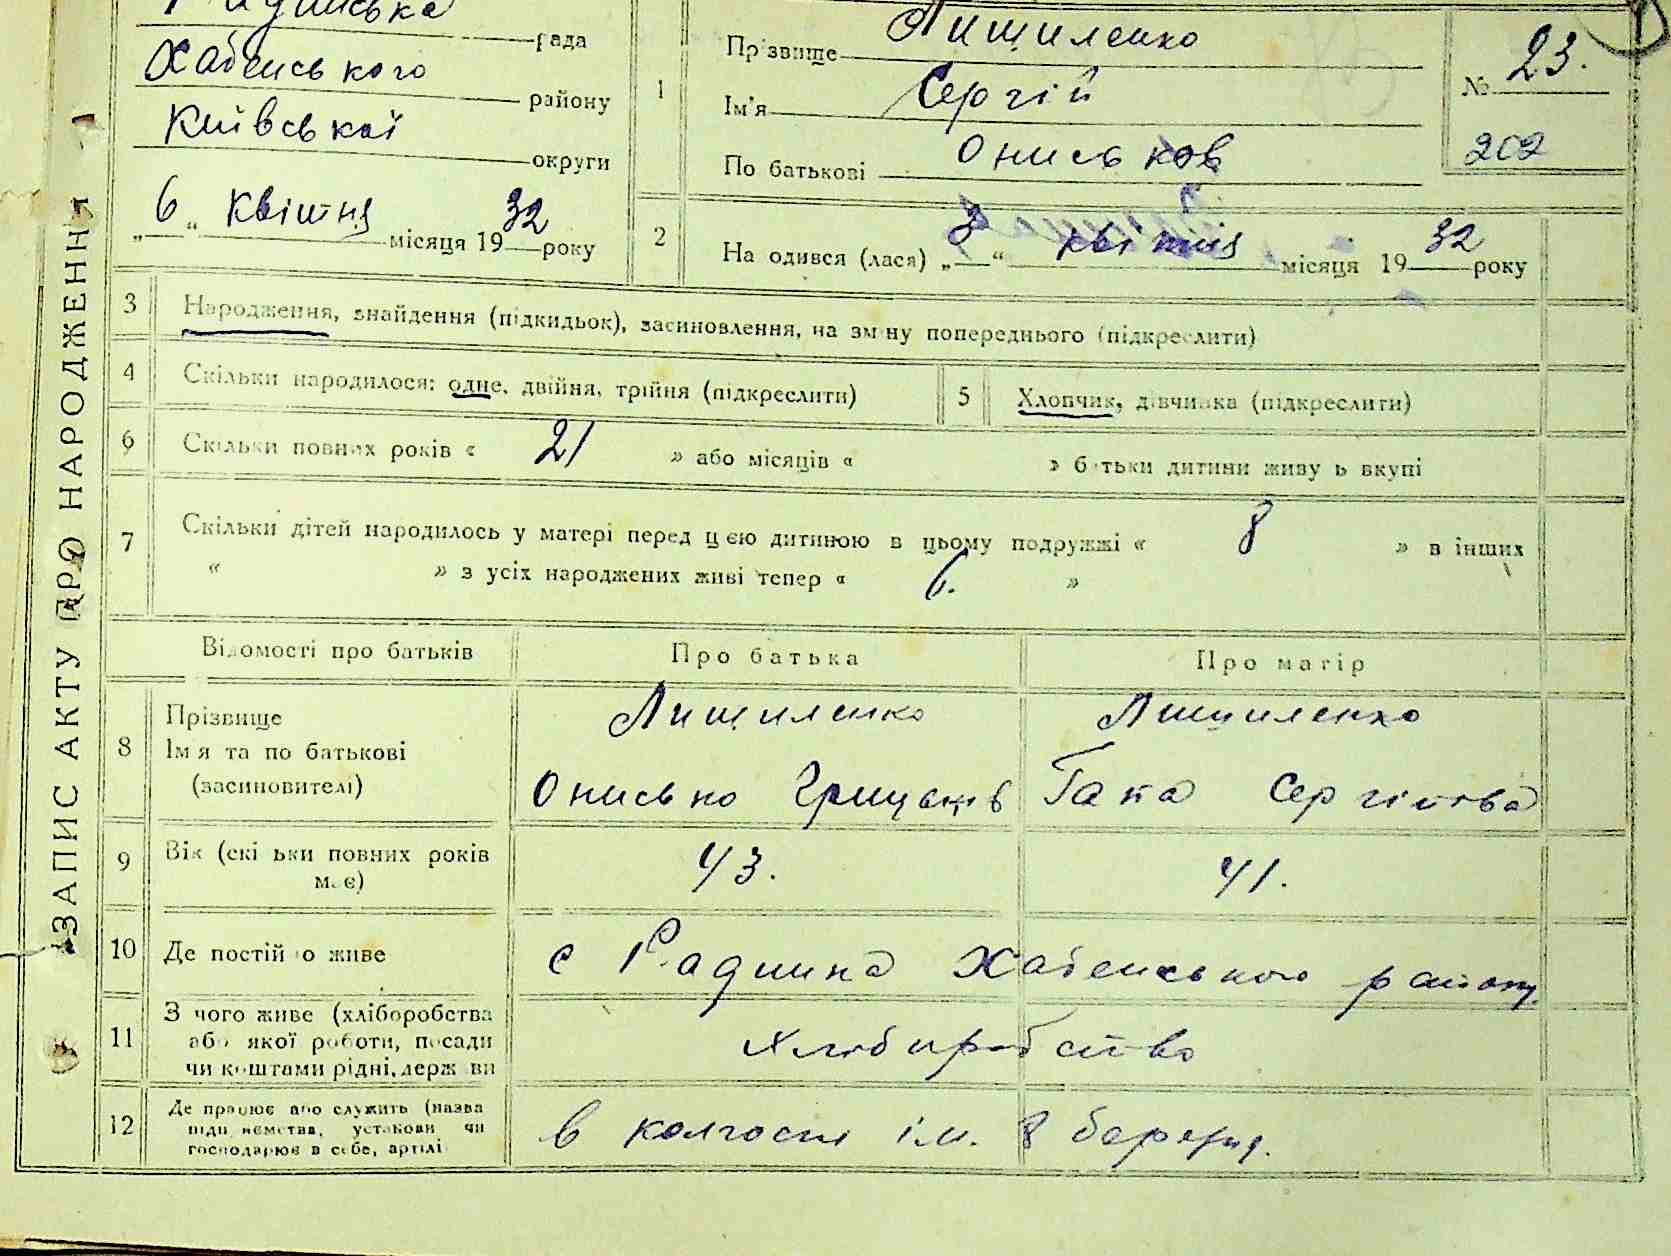 ЗАПИС АКТУ ПРО НАРОДЖЕННЯ
рада
Хабенського району
Київської округи
„6“ квітня місяця 1932 року
1
Прізвище Лищиленко
Ім'я Сергій
По батькові Ониськов
№ 23.
202
2
На одився (лася) „3“ квітня місяця 1932 року
3 Народження, знайдення (підкидьок), засиновлення, на зміну попереднього (підкреслити)
4 Скільки народилося: одне, двійня, трійня (підкреслити)
5 Хлопчик, дівчинка (підкреслити)
6 Скільки повних років « 21 » або місяців « » батьки дитини живуть вкупі
7 Скільки дітей народилось у матері перед цією дитиною в цьому подружжі « 8 » в інших
« » з усіх народжених живі тепер « 6. »
Відомості про батьків Про батька Про матір
8 Прізвище
Ім я та по батькові
(засиновителі)
Лищиленко
Онисько Грицьків
Лищиленко
Гапа Сергіївна
9 Вік (скі ьки повних років має)
43.
41.
10 Де постій о живе
с Радинка Хабенського району
11 З чого живе (хліборобства
або якої роботи, посади
чи коштами рідні, держ ви
Хліборобство
12 Де працює або служить (назва
підп иємства, установи чи
господарює в себе, артілі
в колгоспі ім. 8 березня.